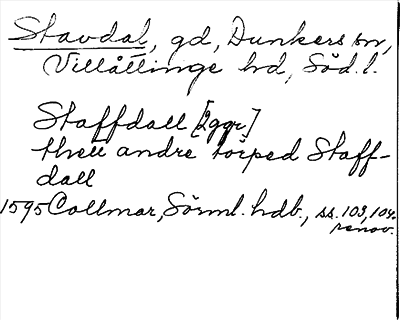 Stavdal, gd, Dunkers sn,
Villåttinge hd, Söd. l.
Staffdall [2ggr]
thett andre törped Staff-
dall
1595 Collmar, Sörml. hdb., ss. 103, 104.
renov.